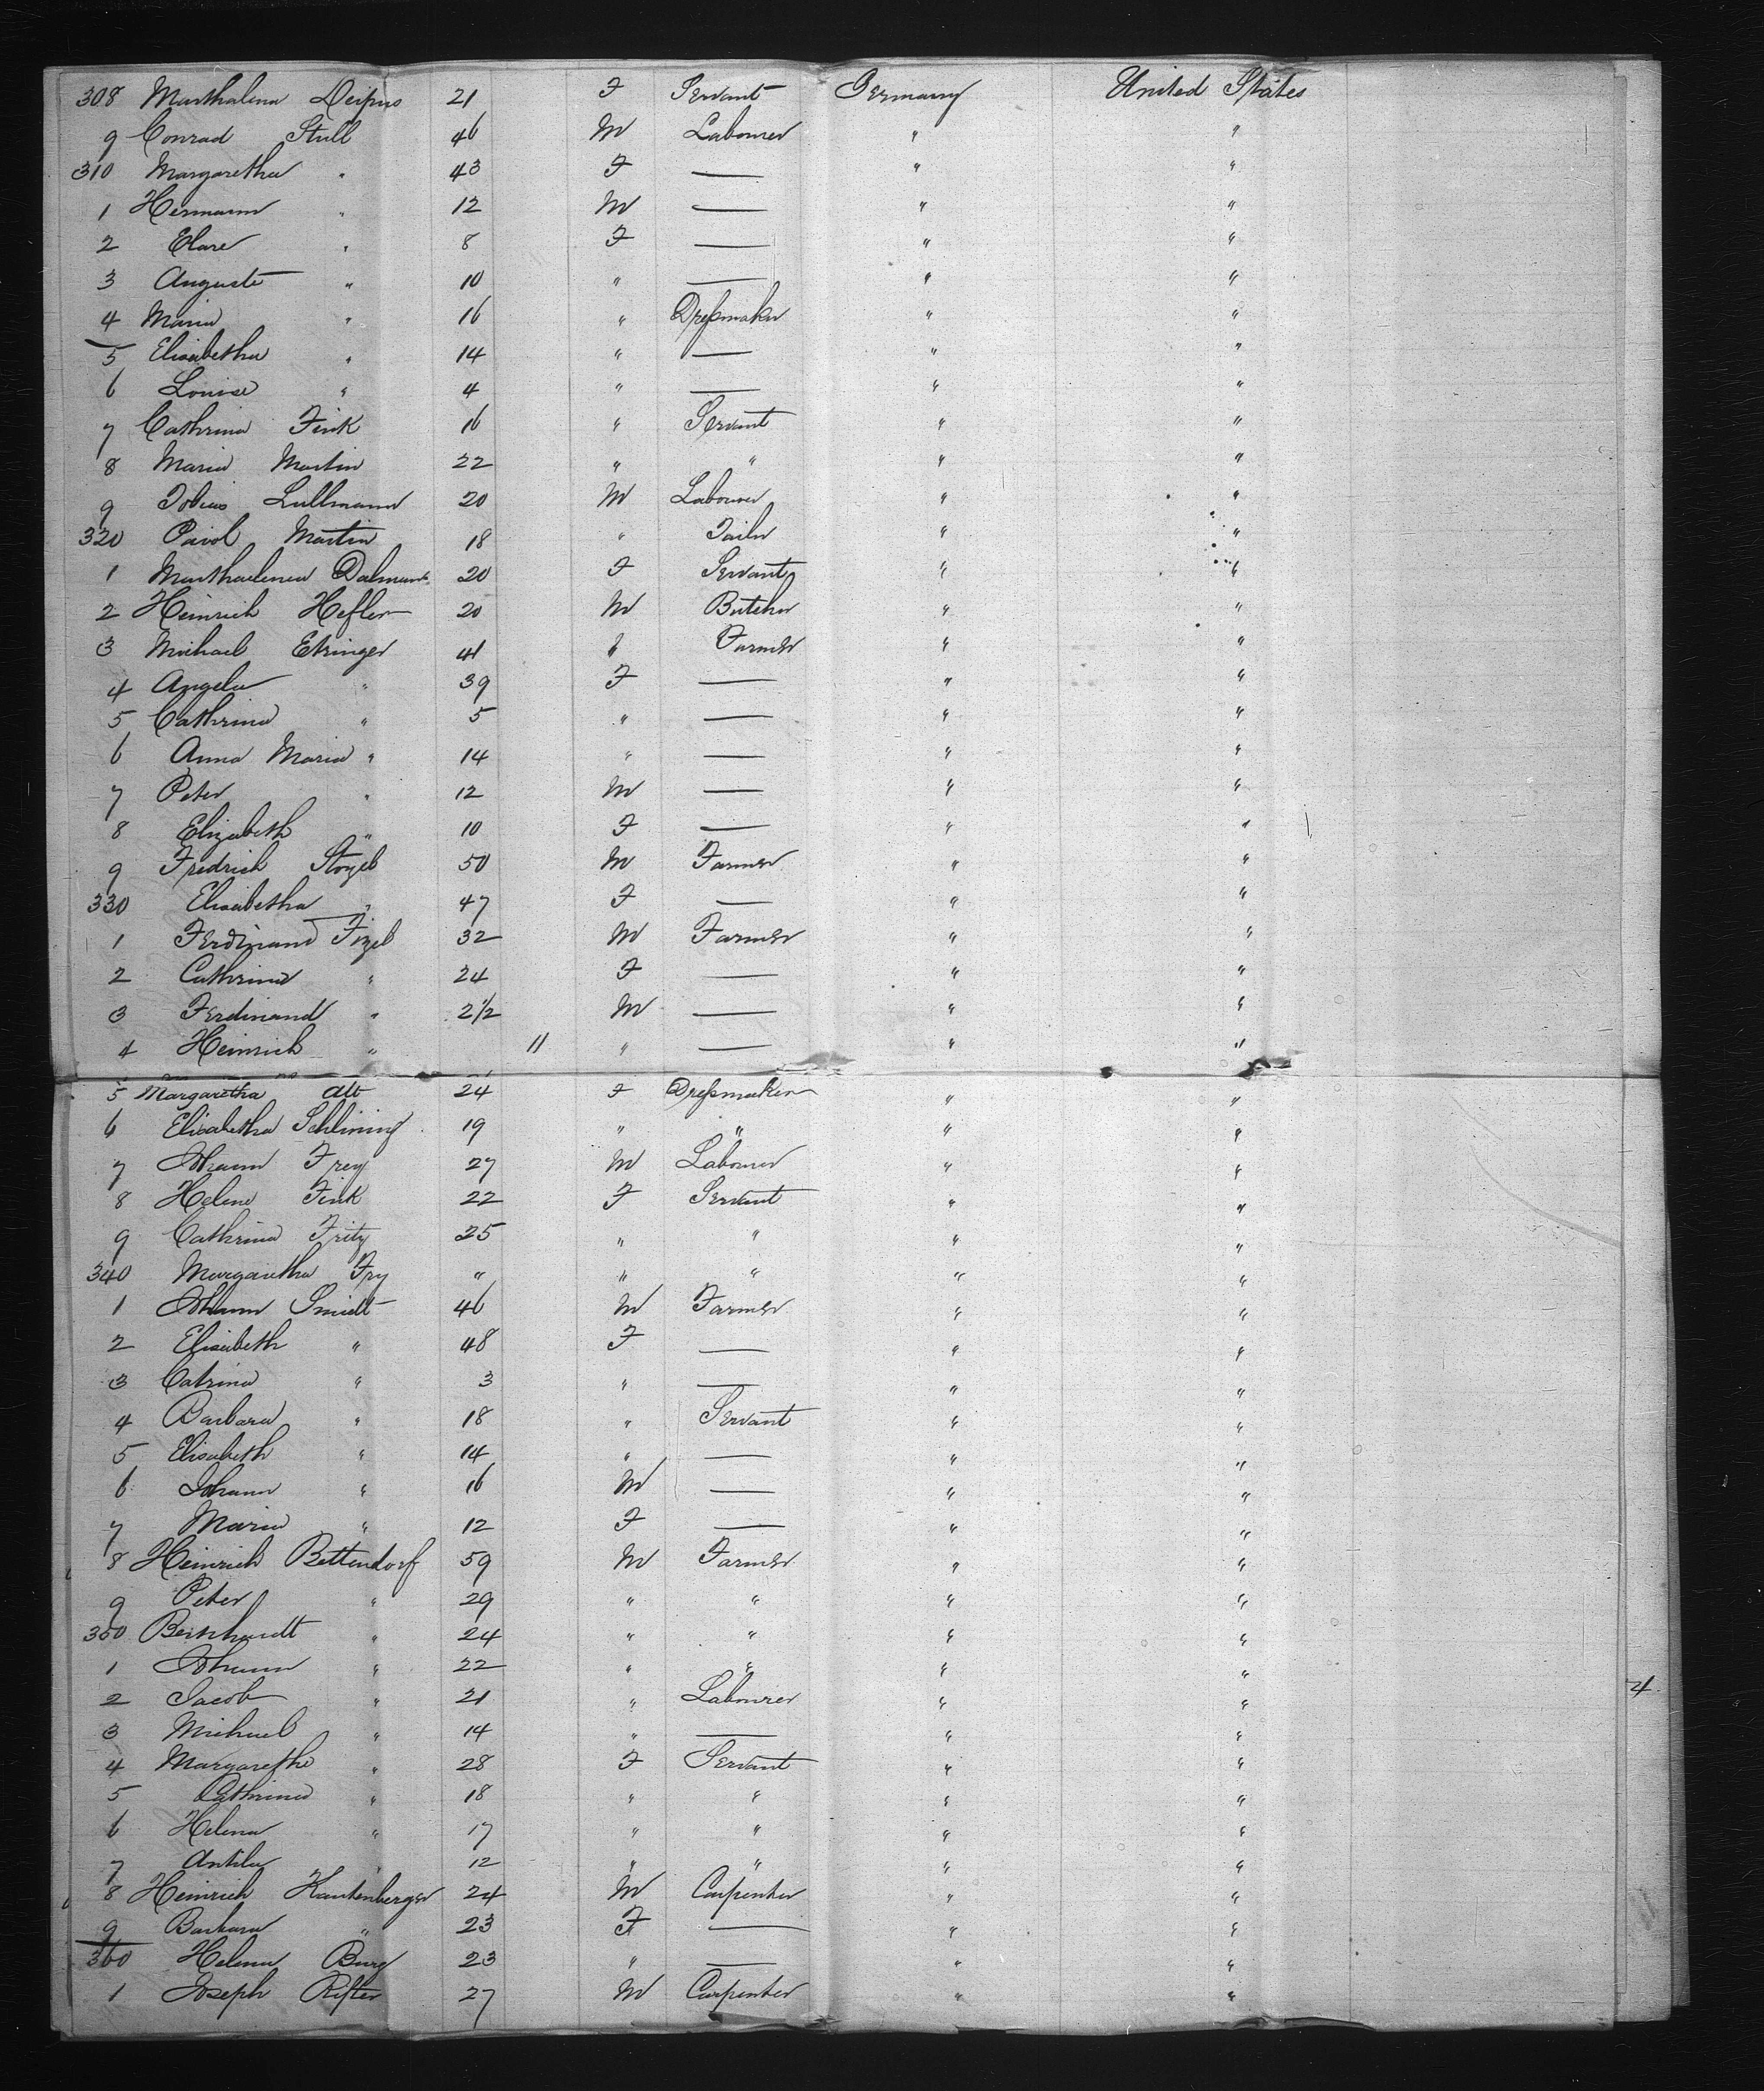 308 Marthalena 21 F Servant Germany United States
9 Conrad Stull 46 M Labourer " "
310 Margaretha " 43 F — " "
1 Hermann " 12 M — " "
2 Clare " 8 F — " "
3 Auguste " 10 " — " "
4 Maria " 16 " Dressmaker " "
5 Elisabetha " 14 " — " "
6 Louise " 4 " — " "
7 Cathrina Fink 16 " Servant " "
8 Maria Martin 22 " " " "
9 Tobias Lullmann 20 M Labourer " "
320 Martin 18 " Tailor " "
1 20 F Servant " "
2 Heinrich Hefler 20 M Butcher " "
3 Michael Etringer 41 " Farmer " "
4 Angela " 39 F — " "
5 Cathrina " 5 " — " "
6 Anna Maria " 14 " — " "
7 Peter " 12 M — " "
8 Elizabeth " 10 F — " "
9 Fredrich 50 M Farmer " "
330 Elisabetha " 47 F — " "
1 Ferdinand Fizel 32 M Farmer " "
2 Cathrina " 24 F — " "
3 Ferdinand " 2 1/2 M — " "
4 Heinrich " 11 " — " "
5 Margaretha Alt 24 F Dressmaker " "
6 Elisabetha Schlining 19 " " " "
7 Johann Frey 27 M Labourer " "
8 Helena Fink 22 F Servant " "
9 Cathrina Fritz 25 " " " "
340 Margaretha Fry " " " " "
1 Johann Smidt 46 M Farmer " "
2 Elisabeth " 48 F — " "
3 Catrina " 3 " — " "
4 Barbara " 18 " Servant " "
5 Elisabeth " 14 " — " "
6 Johann " 16 M — " "
7 Maria " 12 F — " "
8 Heinrich Bettendorf 59 M Farmer " "
9 Peter " 29 " " " "
350 Bernhardt " 24 " " " "
1 Johann " 22 " " " "
2 Jacob " 21 " Labourer " "
3 Michael " 14 " — " "
4 Margarethe " 28 F Servant " "
5 Cathrina " 18 " " " "
6 Helena " 17 " " " "
7 " 12 " " " "
8 Heinrich Kautenberger 24 M Carpenter " "
9 Barbara " 23 F — " "
360 Helena Burg 23 " — " "
1 Joseph Rifter 27 M Carpenter " "
4